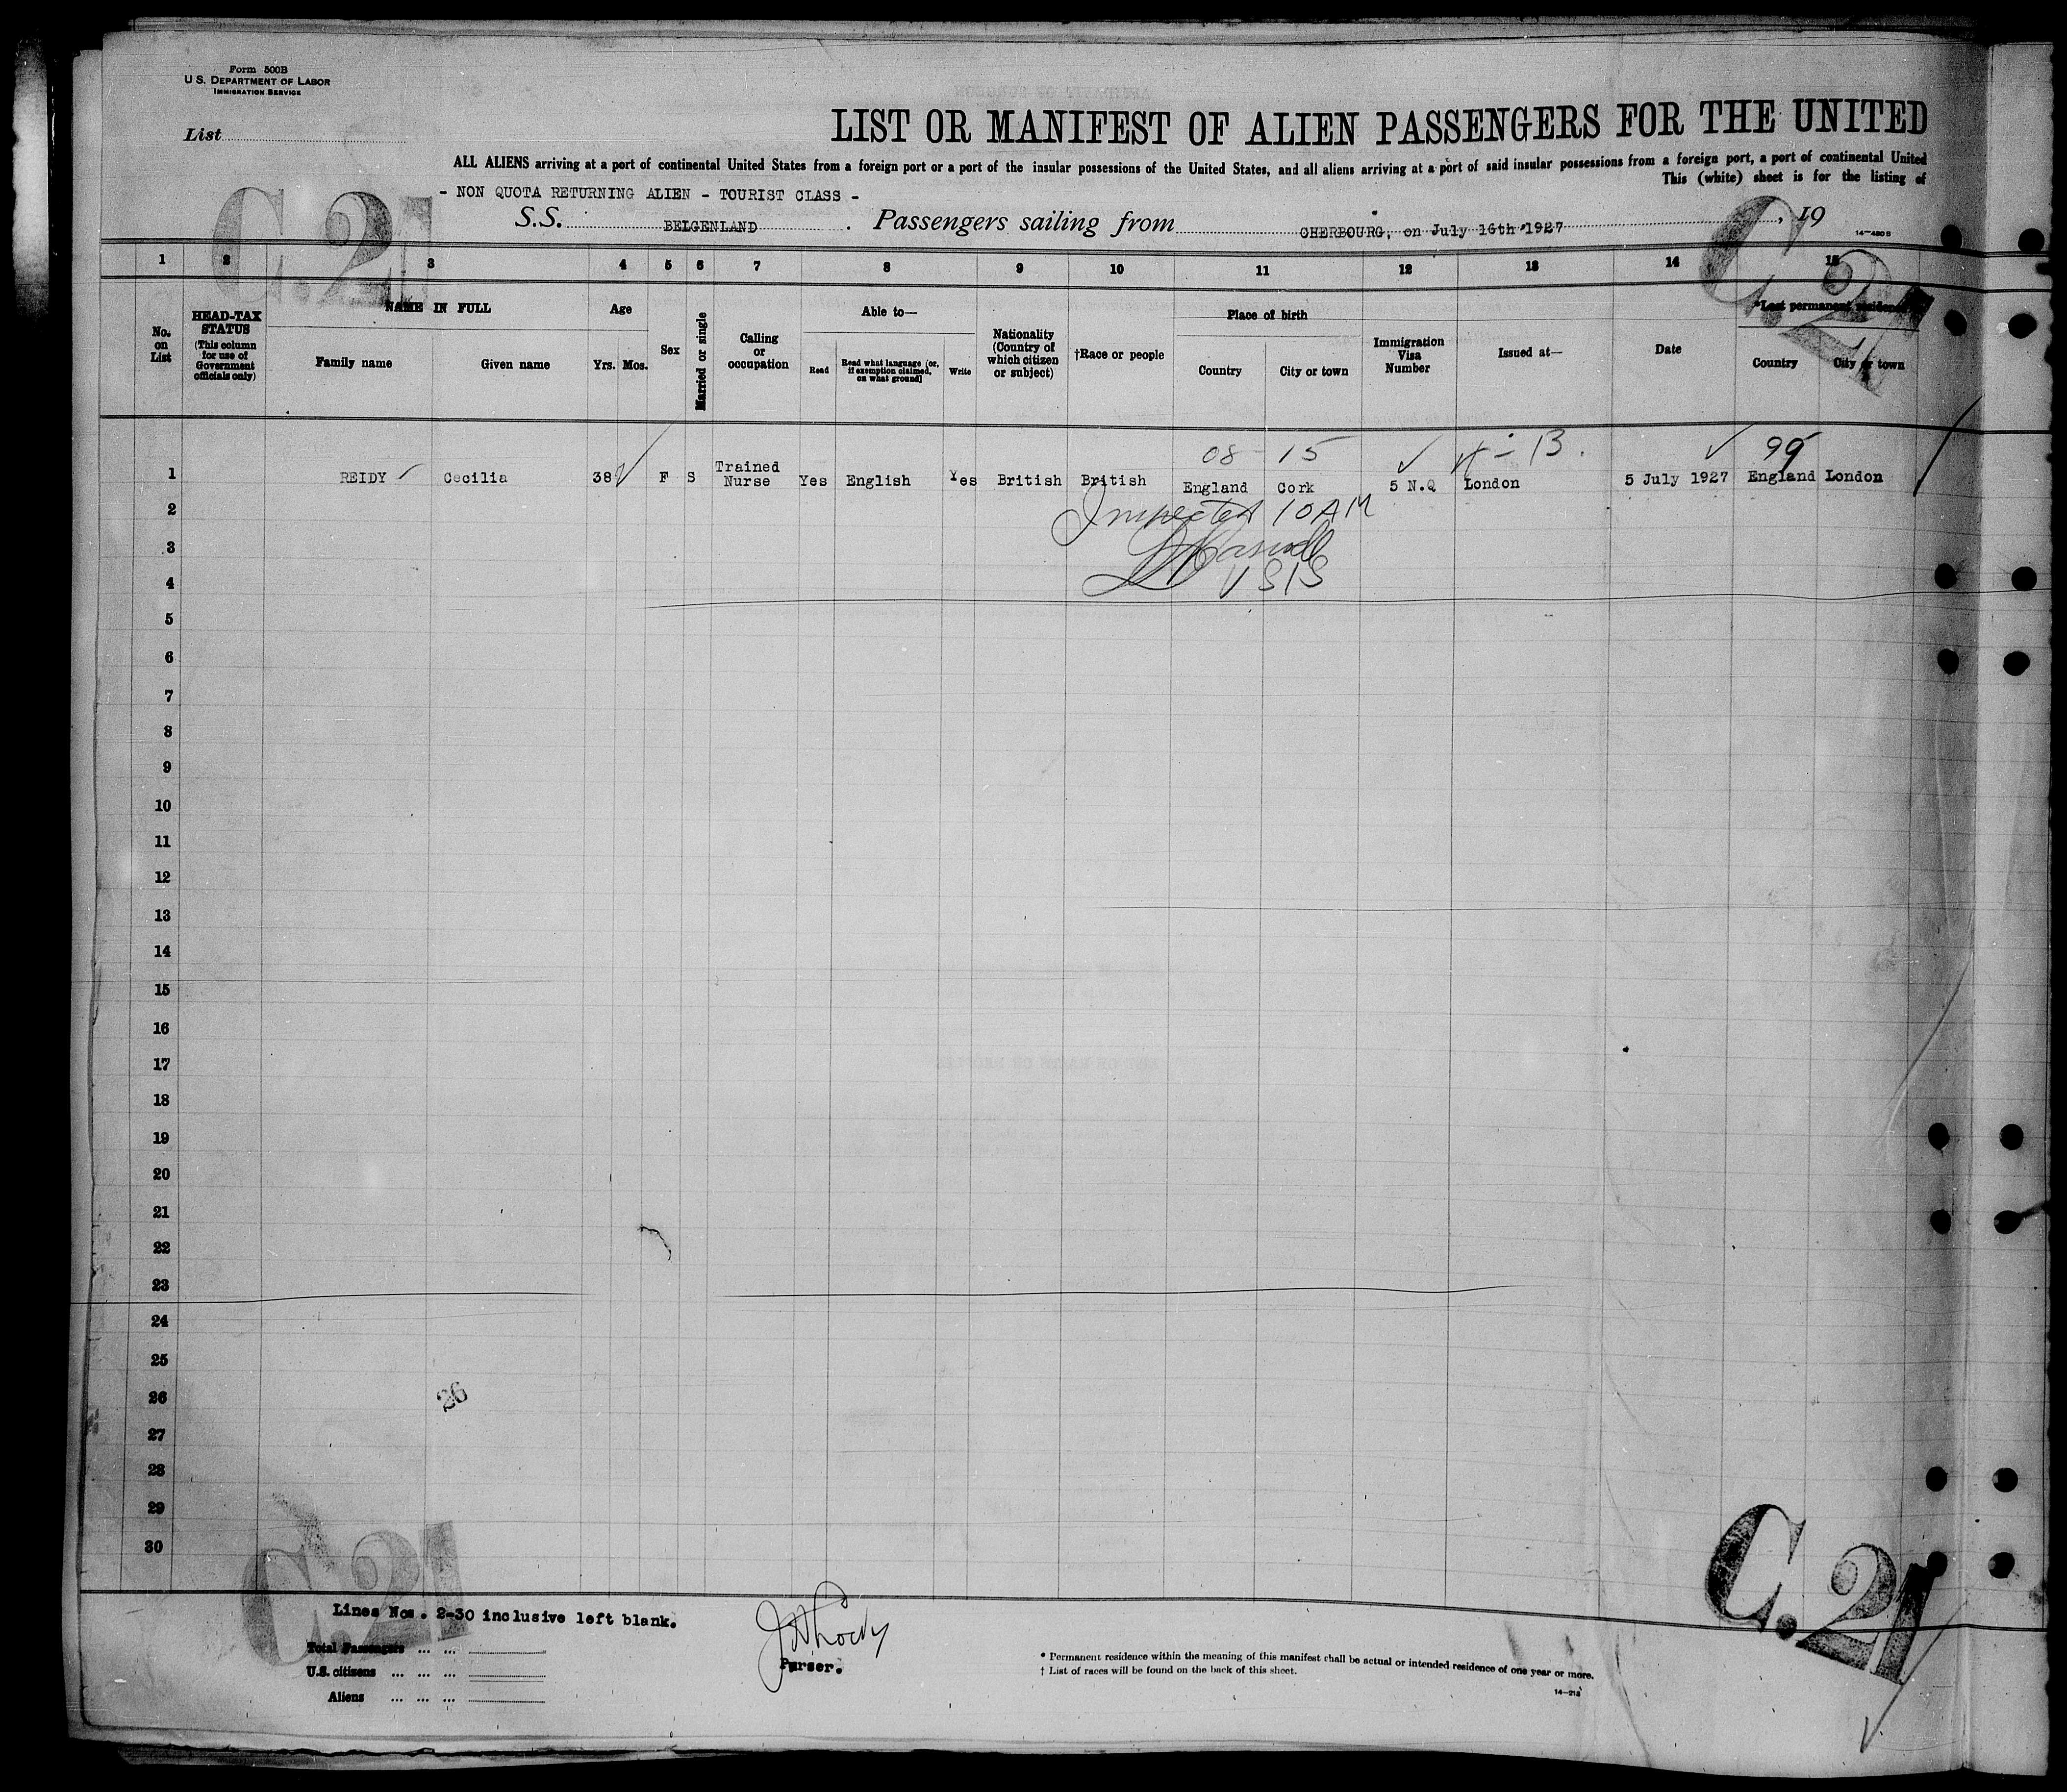 Form 500B
U.S. DEPARTMENT OF LABOR
IMMIGRATION SERVICE
List
LIST OR MANIFEST OF ALIEN PASSENGERS FOR THE UNITED
ALL ALIENS arriving at a port of continental United States from a foreign port or a port of the insular possessions of the United States, and all aliens arriving at a port of said insular possessions from a foreign port, a port of continental United
This (white) sheet is for the listing of
- NON QUOTA RETURNING ALIEN - TOURIST CLASS -
S.S. BELGENLAND . Passengers sailing from CHERBOURG, on July 16th 1927 , 19
14-480 B
C.21 C.21
1 2 3 4 5 6 7 8 9 10 11 12 13 14 15
No. on List
HEAD-TAX STATUS (This column for use of Government officials only)
NAME IN FULL
Family name Given name
Age
Yrs. Mos.
Sex
Married or single
Calling or occupation
Able to—
Read Read what language (or, if exemption claimed, on what ground) Write
Nationality (Country of which citizen or subject)
†Race or people
Place of birth
Country City or town
Immigration Visa Number
Issued at—
Date
*Last permanent residence
Country City or town
08 15 99
1 REIDY Cecilia 38 F S Trained Nurse Yes English Yes British British England Cork 5 N.Q London 5 July 1927 England London
2 Inspected 10 AM
3
4 USIS
5
6
7
8
9
10
11
12
13
14
15
16
17
18
19
20
21
22
23
24
25
26 26
27
28
29
30
C.21 C.21
Lines Nos. 2-30 inclusive left blank.
Total Passengers ... ...
U.S. citizens ... ... ...
Aliens ... ... ...
Purser.
* Permanent residence within the meaning of this manifest shall be actual or intended residence of one year or more.
† List of races will be found on the back of this sheet.
14-213